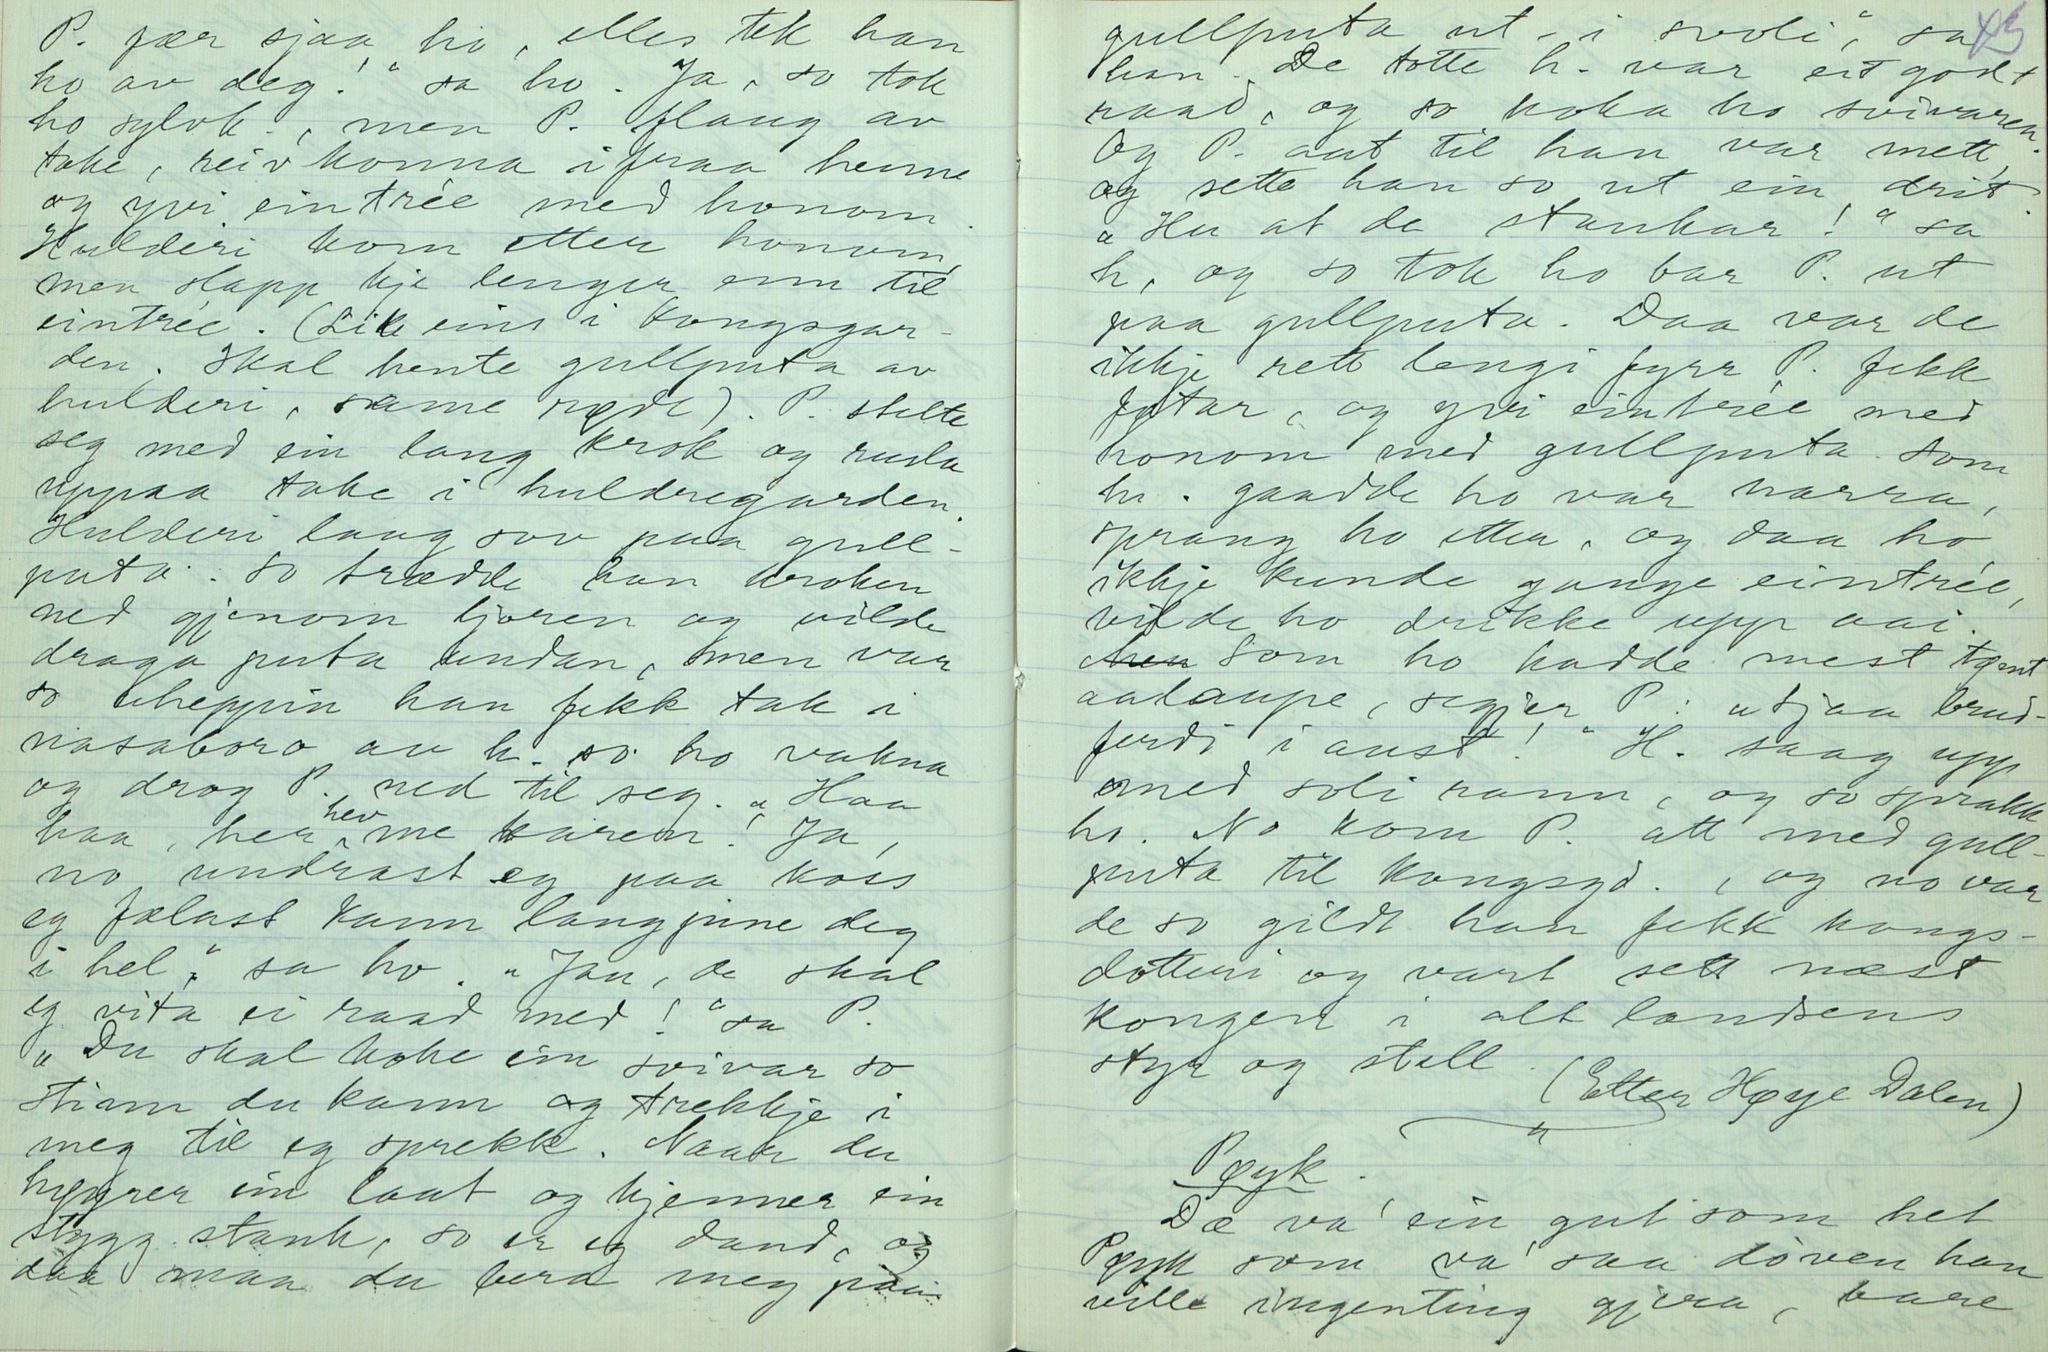 P. fær sjaa ho, elles tek han
ho av deg!" sa ho. Ja, so tok
ho sylvk., men P. flaug av
take, reiv konna ifraa henne
og yvi eintrée med honom.
Hulderi kom etter honom,
men slapp kje lenger enn til
eintrée. (Like eins i kongsgar-
den. Skal hente gullputa av
hulderi, same rødde). P. stelte
seg med ein lang krok og rusla
uppaa take i huldregarden.
Hulderi laag sov paa gull-
puta. So trædde han kroken
ned gjenom ljoren og vilde
draga puta undan, men var
so uheppin han fekk tak i
nasaboro av h. so ho vakna
og drog P. ned til seg. „Haa
haa, her hev me karen! Ja,
no undrast eg paa koss
eg fælast kann langpine deg
i hel," sa ho. „Jau, de skal
eg vita ei raad med!" sa P.
„Du skal koke ein soivar so
stinn du kann og trekkje i
meg til eg sprekk. Naar du
høyrer ein laat og kjenner ein
stygg stank, so er eg daud, og
daa maa du bera meg paa
gullputa ut - i svoli," sa
han. De totte h. var eit godt
raad, og so koka ho soivaren.
Og P. aat til han var mett,
og sette han so ut ein drit.
„Hu at da stankar!" sa
h, og so tok ho bar P. ut
paa gullputa. Daa var de
ikkje rett lengi fyrr P. fekk
føtar, og yvi eintrée med
honom med gullputa. Som
h. gaadde ho var narra,
sprang ho etter, og daa ho
ikkje kunde gange eintrée,
vilde ho drikke upp aai.
Som ho hadde mest tømt
aalaupe, segjer P: „Sjaa brud-
ferdi i aust!" H. saag upp
med soli rann, og so sprakk
ho. No kom P. att med gull-
puta til kongsgd., og no var
de so gildt han fekk kongs-
dotteri og vart sett næst
kongen i alt landsens
styr og stell.
(Etter Høye Dalen)
Pøyk.
Dæ va' ein gut som het
Pøyk som va' saa doven han
ville ingenting gjera, bare